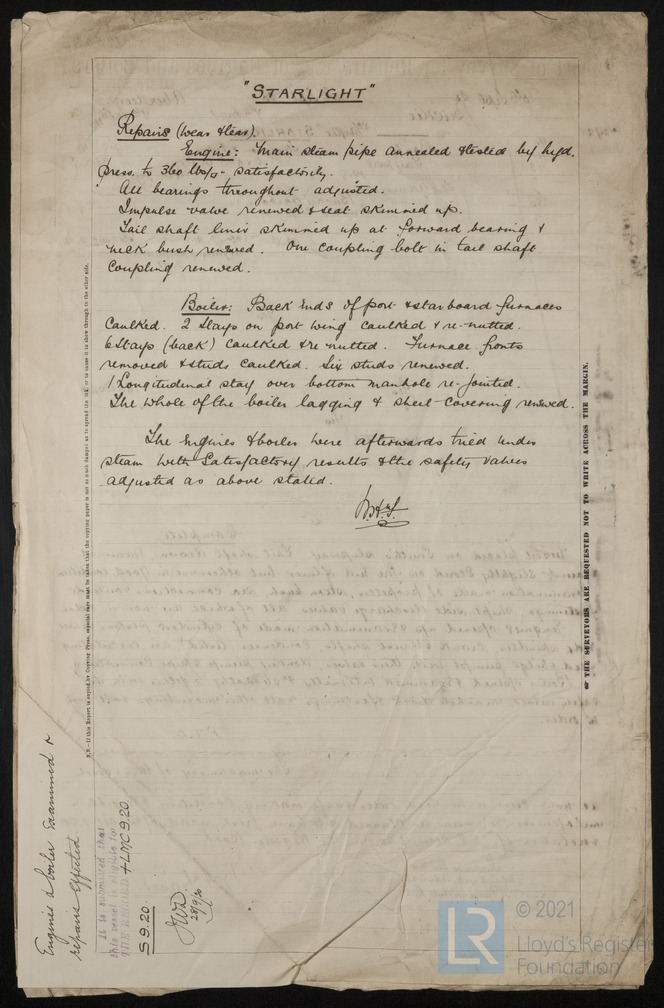 "STARLIGHT"
Repairs (wear & tear).
Engine: Main steam pipe annealed & tested by hyd.
press. to 360 lbs/□" satisfactorily.
All bearings throughout adjusted.
Impulse valve renewed & seat skimmed up.
Tail shaft liner skimmed up at forward bearing &
neck bush renewed. One coupling bolt in tail shaft
coupling renewed.
Boiler: Back ends of port & starboard furnaces
caulked. 2 stays on port wing caulked & re-nutted.
6 Stays (back) caulked & re nutted. Furnace fronts
removed & studs caulked. Six studs renewed.
1 Longitudinal stay over bottom manhole re-jointed.
The whole of the boiler lagging & sheet-covering renewed.
The Engines & boiler were afterwards tried under
steam with satisfactory results & the safety valves
adjusted as above stated.
N.B.—If this Report is copied by Copying Press, especial care must be taken that the copying paper is not so much damped as to spread the ink, or to cause it to show through to the other side.
THE SURVEYORS ARE REQUESTED NOT TO WRITE ACROSS THE MARGIN.
Engines & boiler examined &
repairs effected
It is submitted that
this vessel is eligible for
THE RECORD + LMC 9.20
S 9.20
28/9/20
© 2021
Lloyd's Register
Foundation
LR